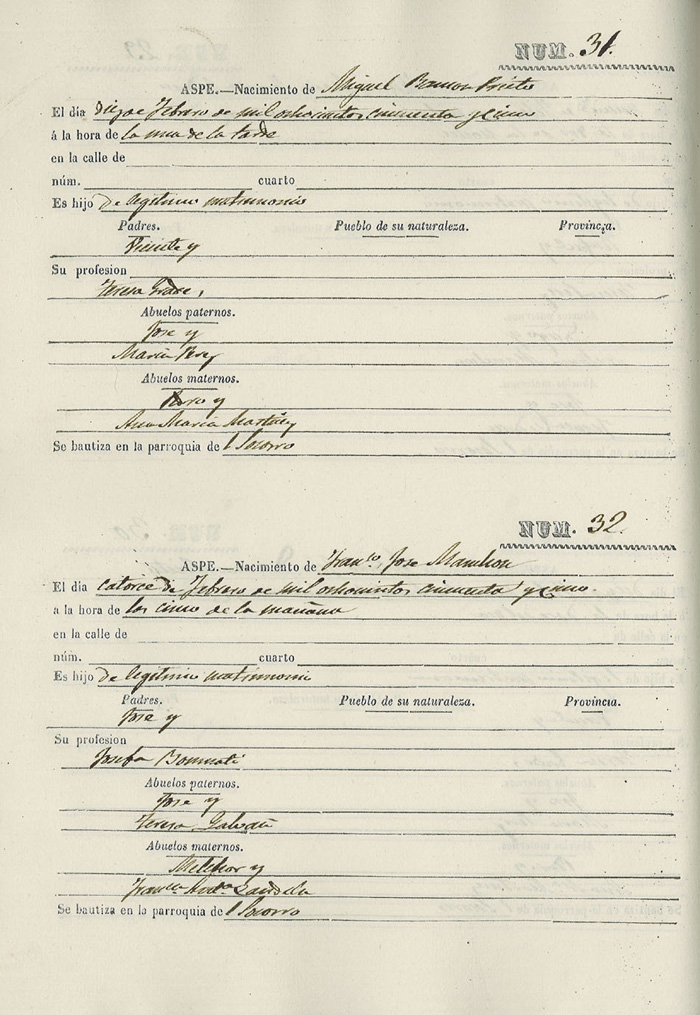 NUM. 31.
ASPE.—Nacimiento de Miguel Ramon Prieto
El día diez de Febrero de mil ochocientos cincuenta y cinco
á la hora de la una de la tarde
en la calle de
núm. cuarto
Es hijo de legitimo matrimonio
Padres. Pueblo de su naturaleza. Provincia.
Vicente y
Su profesion
Teresa
Abuelos paternos.
Jose y
Maria Perez
Abuelos maternos.
y
Ana Maria Martinez
Se bautiza en la parroquia de l Socorro
NUM. 32.
ASPE.—Nacimiento de Franco. Jose
El día catorce de Febrero de mil ochocientos cincuenta y cinco.
a la hora de las cinco de la mañana
en la calle de
núm. cuarto
Es hijo de legitimo matrimonio
Padres. Pueblo de su naturaleza. Provincia.
Jose y
Su profesion
Josefa Bonmati
Abuelos paternos.
Jose y
Teresa Galvañ
Abuelos maternos.
Melchor y
Franca
Se bautiza en la parroquia de l Socorro